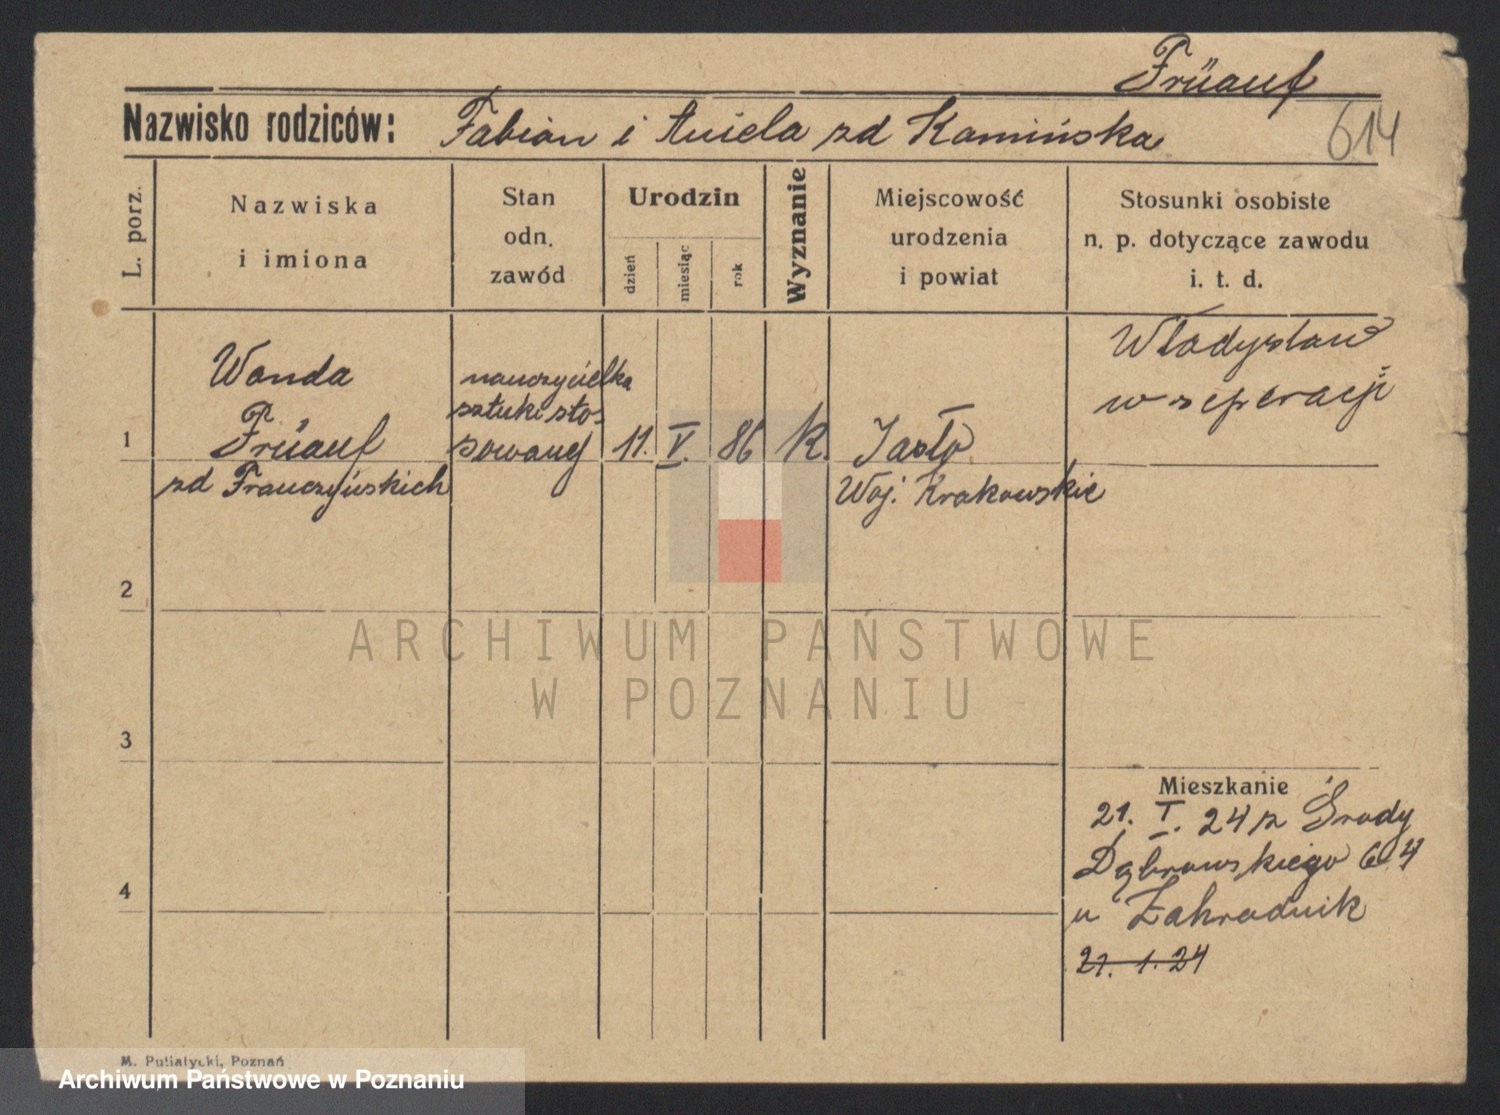 Früauf
Nazwisko rodziców: Fabian i Aniela zd Kamińska
614
L. porz.
Nazwiska
i imiona
Stan
odn.
zawód
Urodzin
dzień
miesiąc
rok
Wyznanie
Miejscowość
urodzenia
i powiat
Stosunki osobiste
n. p. dotyczące zawodu
i. t. d.
1
Wanda
Früauf
zd Franczyńskich
nauczycielka
sztuki sto-
sowanej
11. V. 86
k.
Jasło
Woj. Krakowskie
Władysław
w seperacji
2
3
4
Mieszkanie
21. I. 24 z Środy
Dąbrowskiego 64
u Zahradnik
21. 1. 24
ARCHIWUM PAŃSTWOWE
W POZNANIU
M. Putiatycki, Poznań
Archiwum Państwowe w Poznaniu